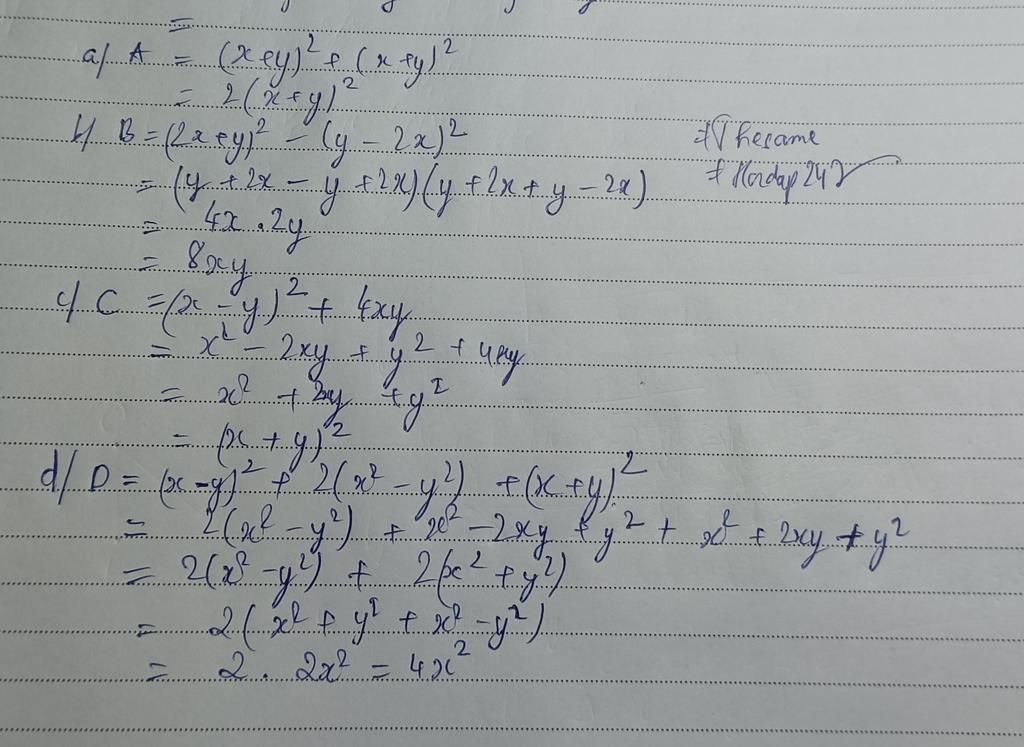 =
a/ A = (x+y)² + (x+y)²
= 2(x+y)²
b/ B = (2x+y)² - (y - 2x)²
= (y + 2x - y + 2x)(y + 2x + y - 2x)
= 4x . 2y
= 8xy
c/ C = (x - y)² + 4xy
= x² - 2xy + y² + 4xy
= x² + 2xy + y²
= (x + y)²
d/ D = (x - y)² + 2(x² - y²) + (x + y)²
= 2(x² - y²) + x² - 2xy + y² + x² + 2xy + y²
= 2(x² - y²) + 2(x² + y²)
= 2(x² + y² + x² - y²)
= 2 . 2x² = 4x²